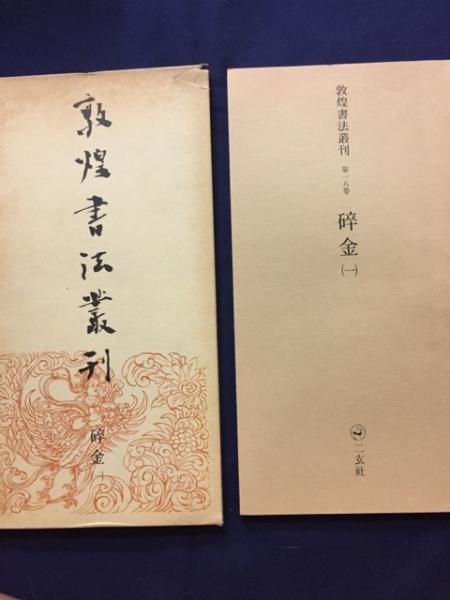 敦煌書法叢刊
碎金(一)
敦煌書法叢刊 第一八巻
碎金(一)
二玄社